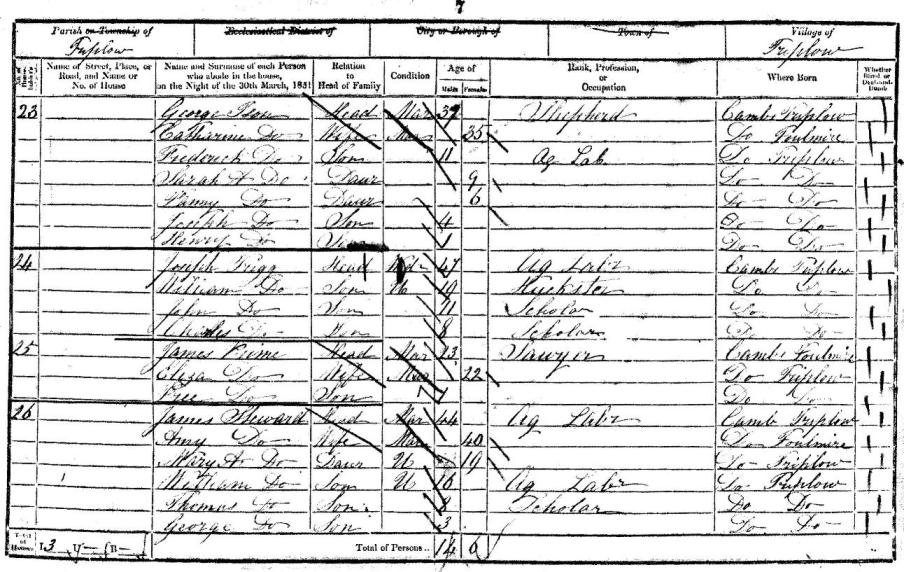 7
Parish or Township of Ecclesiastical District of City or Borough of Town of Village of
Triplow Triplow
Name of Street, Place, or Road, and Name or No. of House
Name and Surname of each Person who abode in the house, on the Night of the 30th March, 1851
Relation to Head of Family
Condition
Age of
Males Females
Rank, Profession, or Occupation
Where Born
Whether Blind, or Deaf-and-Dumb
23 George Head Mar 37 Shepherd Cambs Triplow
Catharine Do Wife Mar 35 Do Foulmire
Frederick Do Son 11 Ag Lab Do Triplow
Sarah A Do Daur 9 Do Do
Do Daur 6 Do Do
Joseph Do Son 4 Do Do
Henry Do Son 1 Do Do
24 Joseph Trigg Head 47 Ag Labr Cambs Triplow
William Do Son U 19 Huckster Do Do
John Do Son 11 Scholar Do Do
Charles Do Son 8 Scholar Do Do
25 James Head Mar 23 Sawyer Cambs Foulmire
Eliza Do Wife Mar 22 Do Triplow
Do Son Do Do
26 James Steward Head Mar 44 Ag Labr Camb Triplow
Amy Do Wife Mar 40 Do Foulmire
Mary A Do Daur U 19 Do Triplow
William Do Son U 16 Ag Labr Do Triplow
Thomas Do Son 8 Scholar Do Do
George Do Son 3 Do Do
Total of Houses I 3 U— B— Total of Persons .. 14 6